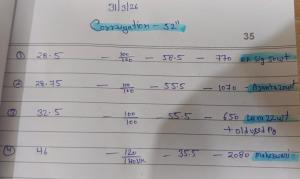 31/3/26
Corrugation - 52"
35
① 28.5 - 100/100 - 58.5 - 770
② 28.75 - 100/100 - 55.5 - 1070 -
③ 32.5 - 100/100 - 55.5 - 650
+ old used
④ 46 - 120/ - 35.5 - 2080